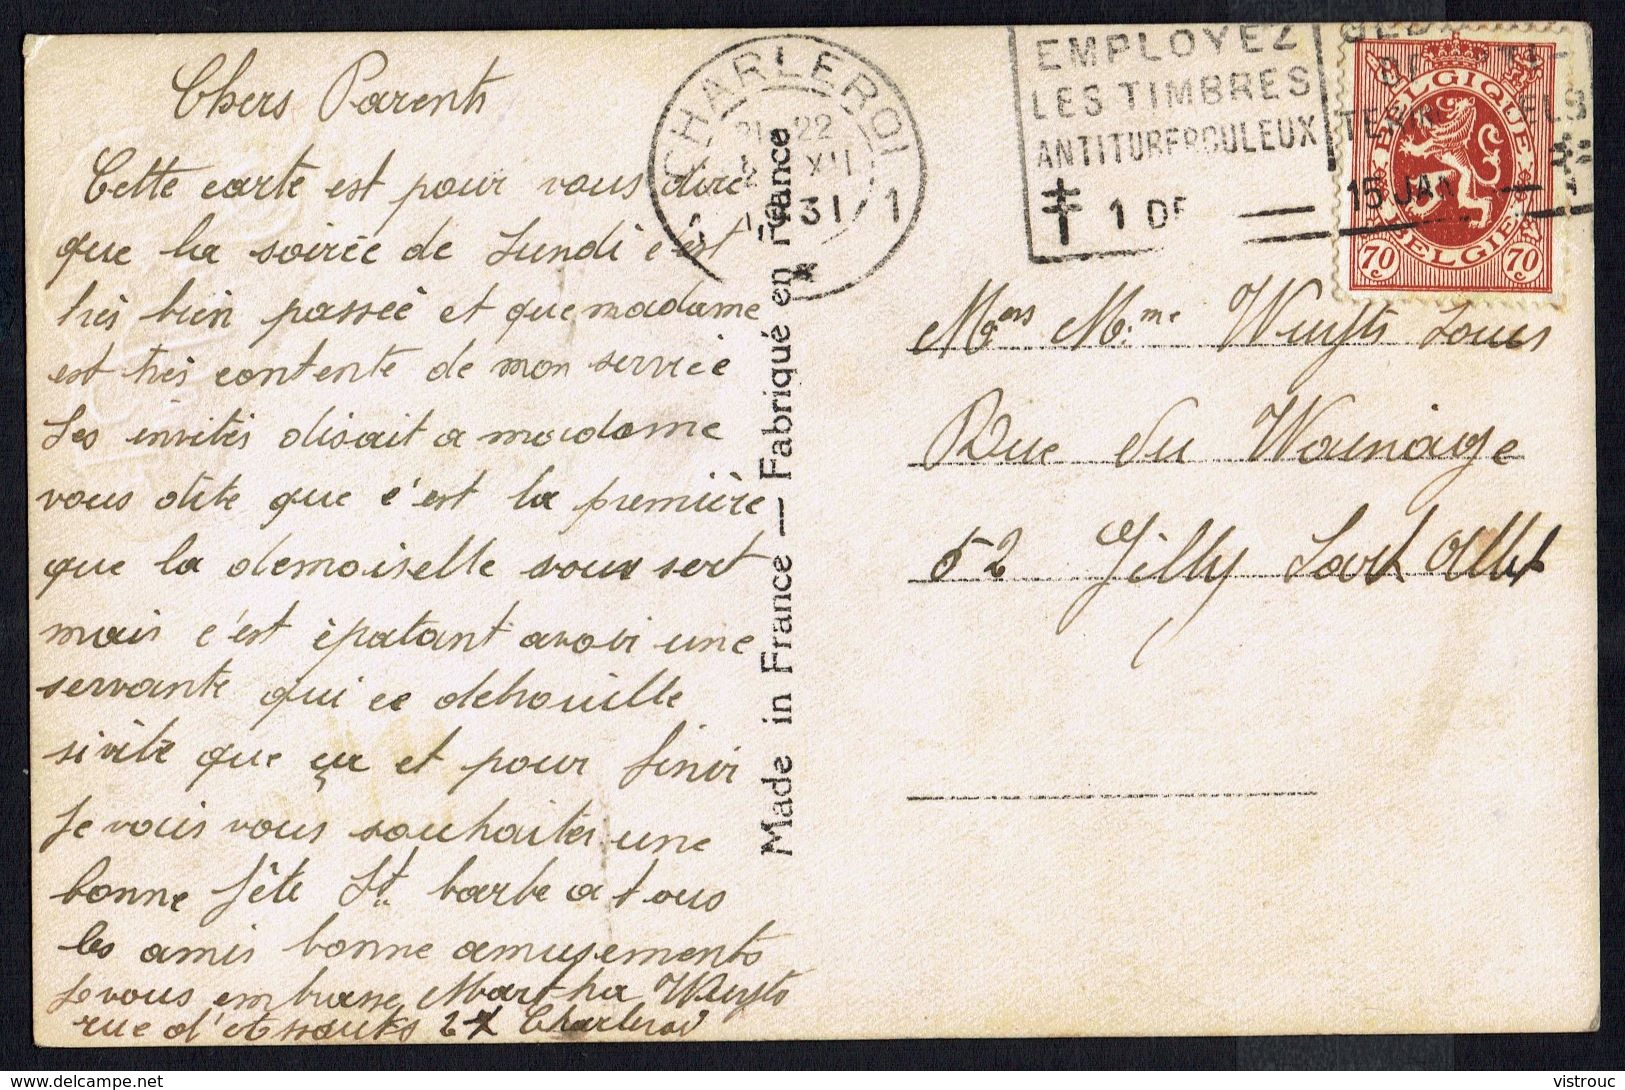 Chers Parents
Cette carte est pour vous dire
que la soirée de Lundi c'est
très bien passée et que madame
est très contente de mon service
Les invités disait a madame
vous dite que c'est la première
que la demoiselle vous sert
mais c'est épatant avoir une
servante qui ce debrouille
si vite que ça et pour finir
Je vais vous souhaiter une
bonne fête St barbe a tous
les amis bonne amusements
Je vous embrasse Martha Wuyts
rue d'Assaut Charleroi
Made in France — Fabriqué en France
CHARLEROI 1
21-22
XII
31
*
EMPLOYEZ
LES TIMBRES
ANTITUBERCULEUX
1 DE
15 JAN
BELGIQUE
BELGIË
70 70
Mons Mme Wuyts Louis
Rue du Wainage
52 Gilly Sart Allet
delcampe.net
vistrouc